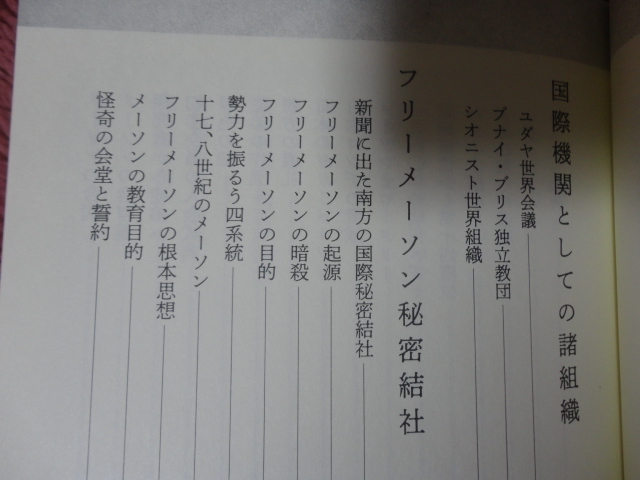 国際機関としての諸組織
ユダヤ世界会議
ブナイ・ブリス独立教団
シオニスト世界組織
フリーメーソン秘密結社
新聞に出た南方の国際秘密結社
フリーメーソンの起源
フリーメーソンの暗殺
フリーメーソンの目的
勢力を振るう四系統
十七、八世紀のメーソン
フリーメーソンの根本思想
メーソンの教育目的
怪奇の会堂と誓約